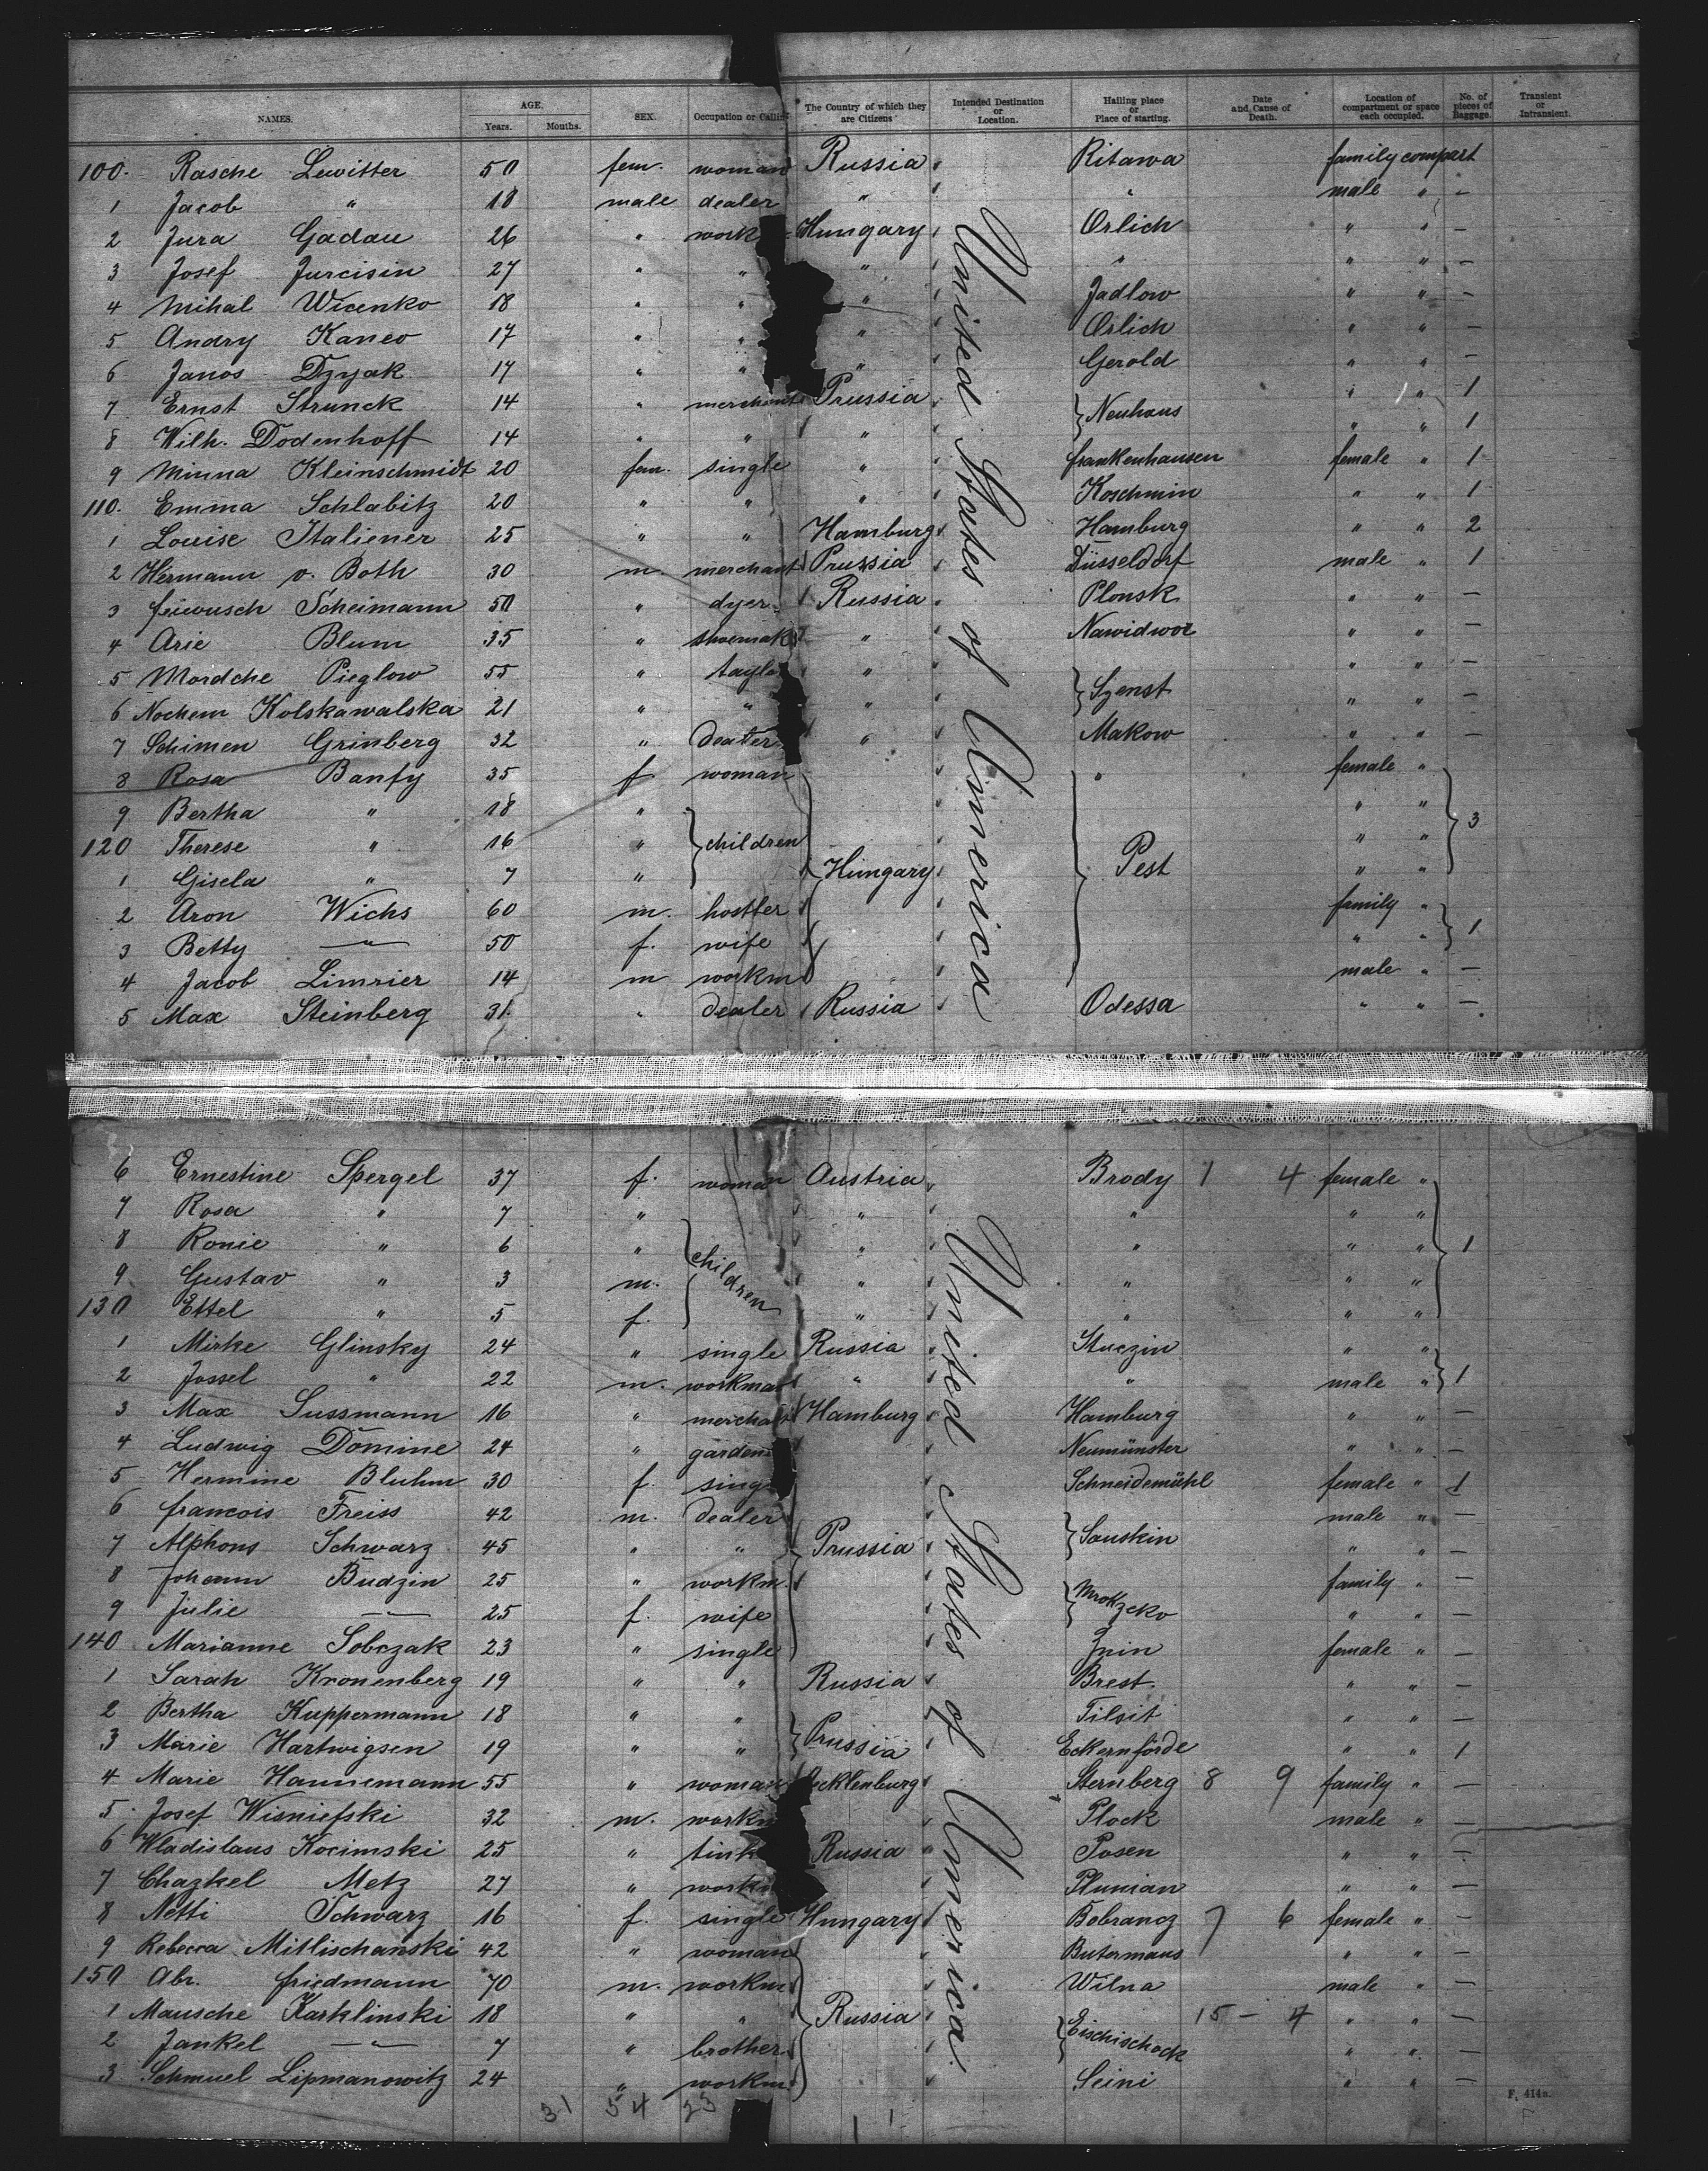 NAMES. AGE. Years. Months. SEX. Occupation or Calling The Country of which they are Citizens Intended Destination or Location. Hailing place or Place of starting. Date and Cause of Death. Location of compartment or space each occupied. No. of pieces of Baggage. Transient or Intransient.
United States of America
100. Rasche Lewitter 50 fem. woman Russia Ritawa family compart
1 Jacob " 18 male dealer " " male " –
2 Jura Gadau 26 " work Hungary Orlich " " –
3 Josef Jurcisin 27 " " " " " " –
4 Mihal Wicenko 18 " " " Jadlow " " –
5 Andry Kaneo 17 " " " Orlich " " –
6 Janos Dzyak 17 " " " Gerold " " –
7 Ernst Strunck 14 " merchant Prussia } Neuhaus " " 1
8 Wilh. Dodenhoff 14 " " " " " 1
9 Minna Kleinschmidt 20 fem. single " Frankenhausen female " 1
110. Emma Schlabitz 20 " " " Koschmin " " 1
1 Louise Italiener 25 " " Hamburg Hamburg " " 2
2 Hermann v. Both 30 m. merchant Prussia Düsseldorf male " 1
3 Feiwusch Scheimann 50 " dyer Russia Plonsk " " –
4 Arie Blum 35 " shoemak " Nawidwor " " –
5 Mordche Pieglow 55 " taylo " } Szenst " " –
6 Nochem Kolskawalska 21 " " " " " –
7 Schimen Grinberg 32 " dealer " Makow " " –
8 Rosa Banfy 35 f woman " female "
9 Bertha " 18 " " "
120 Therese " 16 " } children Pest " " } 3
1 Gisela " 7 " { Hungary " "
2 Aron Wichs 60 m. hostler family "
3 Betty —"— 50 f. wife " " } 1
4 Jacob Limrier 14 m workm male " –
5 Max Steinberg 31. " dealer Russia Odessa " " –
United States of America
6 Ernestine Spergel 37 f. woman Austria Brody 1 4 female "
7 Rosa " 7 " " " " "
8 Ronie " 6 " children " " " " } 1
9 Gustav " 3 m. " " " "
130 Ettel " 5 f. " " " "
1 Mirke Glinsky 24 " single Russia Stuczin " "
2 Jossel " 22 m. workman " " male " } 1
3 Max Sussmann 16 " merchan Hamburg Hamburg " " –
4 Ludwig Domine 24 " gardene Neumünster " " –
5 Hermine Bluhm 30 f. sing Schneidemühl female " 1
6 Francois Freiss 42 m. dealer male " –
7 Alphons Schwarz 45 " " Prussia } Sauskin " " –
8 Johann Budzin 25 " workm. family " –
9 Julie —"— 25 f. wife } Mrokzeko " " –
140 Marianne Sobczak 23 " single Znin female " –
1 Sarah Kronenberg 19 " " Russia Brest. " " –
2 Bertha Kuppermann 18 " " Tilsit " " –
3 Marie Hartwigsen 19 " " } Prussia Eckernförde " " 1
4 Marie Hannemann 55 " woman ecklenburg Sternberg 8 9 family " –
5 Josef Wisniefski 32 m. workm Plock male " –
6 Wladislaus Kocimski 25 " tink Russia Posen " " –
7 Chazkel Metz 27 " workm Plunian " " –
8 Netti Schwarz 16 f. single Hungary Bobrancz 7 6 female " –
9 Rebecca Mitlischanski 42 " woman Butermans " " –
150 Abr. Friedmann 70 m. workm Wilna male " –
1 Mausche Karklinski 18 " " Russia } Eischischock 15 – 4 " " –
2 Jankel —"— 7 " brother " " –
3 Schmuel Lipmanowitz 24 " workm Seini " " –
31 54 23
F. 414a.